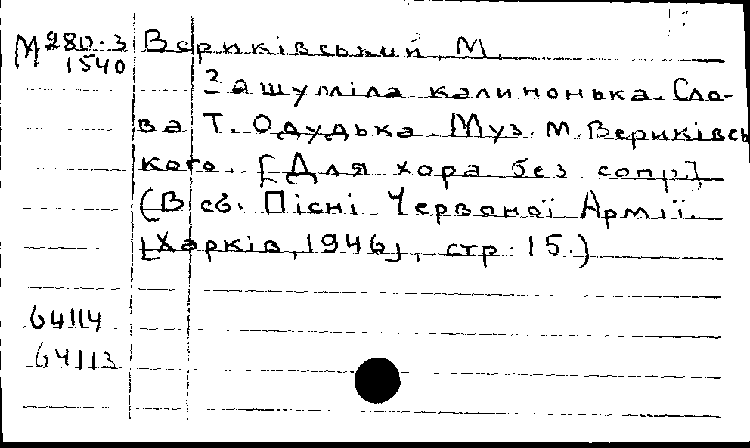 М 280-3 Вериківський, М.
1540
Зашуміла калинонька. Сло-
ва Т. Одудька. Муз. М. Вериківсь
кого. [Для хора без сопр.]
(В сб. Пісні Червоної Армії.
[Харків, 1946], стр. 15.)
64114
64113